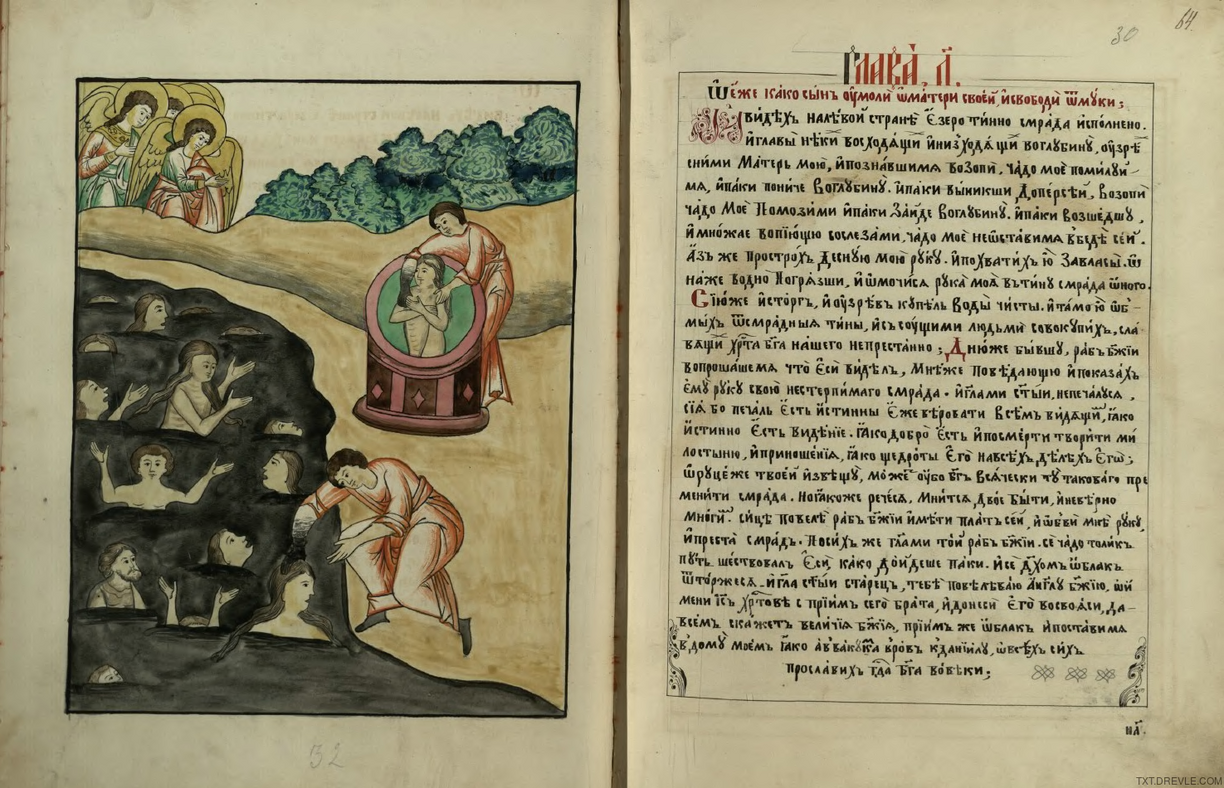 32
30
64
Глава, л҃.
Ѿе́же ка́ко сы́нъ оу҆моли̑ ѡ҆ ма́тери свое́й, и҆свободѝ ѿ мꙋ́ки;
И҆ ви́дѣхъ налѣ́вой странѣ̀ є҆́зеро ти́нно смра́да и҆спо́лнено.
и҆ главы̀ нѣ́ки восходѧ́щи и҆ низходѧ́щи воглꙋбинꙋ̀, оу҆зрѣ̀
сни́ми Ма́терь мою̀, и҆ позна́вшимѧ возопѝ, ча́до моѐ поми́лꙋй
мѧ, и҆ па́ки пони́че воглꙋбинꙋ̀. и҆ па́ки вы́никши допе́рсѣй, возопѝ
ча́до Моѐ Помози́ми и҆ па́ки За́йде воглꙋбинꙋ̀. и҆ па́ки возше́дшꙋ,
и҆ мно́жае вопїю́щю сослеза́ми, ча́до моѐ неѡ҆ста́вимѧ вбѣдѣ̀ се́й.
а҆́зъ же простро́хъ деснꙋ́ю мою̀ рꙋ́кꙋ. и҆ похвати́хъ ю҆̀ завласы̀. ѡ҆
на́же водно̀ погрѧ́зши, и҆ ѡ҆мочи́сѧ рꙋка̀ моѧ̀ вти́нꙋ смра́да ѡ҆́ного.
Сїю́же и҆сто́ргъ, и҆ оу҆зрѣ́въ кꙋпѣ́ль воды̀ чи́сты. и҆ та́мо ю҆̀ ѡ҆б
мы́хъ ѿ смра́дныѧ ти́ны, и҆съ сꙋ́щими людьмѝ совокꙋпи́хъ, сла
вѧ́щи хрⷭ҇та̀ бг҃а на́шего непреста́нно; Дню́же бы́вшꙋ, ра́бъ бж҃їи
вопроша́шемѧ что̀ є҆сѝ ви́дѣлъ, мнѣ́же повѣ́дающю и҆ показа́хъ
є҆мꙋ̀ рꙋ́кꙋ свою̀ нестерпи́маго смра́да. и҆ гл҃а ми ст҃ы́и, непеча́лꙋсѧ,
сїѧ́ бо печа́ль є҆́сть и҆́стинны є҆́же вѣ́ровати всѣ́мъ ви́дѧщи, ꙗ҆́ко
и҆́стинно є҆́сть видѣ́нїе. ꙗ҆́ко добро̀ є҆́сть и҆ посме́рти твори́ти ми
лостыню, и҆ приноше́нїѧ, ꙗ҆́ко щедро́ты є҆гѡ̀ навсѣ́хъ дѣ́лѣхъ є҆гѡ̀;
ѡ҆ рꙋцѣ́же твое́й и҆звѣ́щꙋ, мо́жеⷮ оу҆́бо бг҃ъ всѧ́чески тꙋ̀ такова́го пре
мени́ти смра́да. но ꙗ҆́коже рече́сѧ, мни́тсѧ, дво́е бы́ти, и҆ невѣ́рно
мно́гиⷨ. си́це повелѣ̀ ра́бъ бж҃їи и҆мѣ́ти пла́тъ се́й, и҆ ѡ҆бвѝ мнѣ̀ рꙋ́кꙋ,
и҆ преста̀ смра́дъ. по си́хъ же гл҃а ми то́й ра́бъ бж҃їи. сѐ ча́до толи́къ
пꙋ́ть ше́ствовалъ є҆сѝ, ка́ко до́йдеше па́ки. и҆ сѐ дꙋ́хомъ ѡ҆́блакъ
ѿто́ржесѧ. и҆ гл҃а ст҃ы́и ста́рецъ, тебѣ̀ повѣлѣва́ю а҆́нг҃лꙋ бж҃їю, ѡ҆ и҆́
мени і҆с҃ъ хрⷭ҇то́вѣ с прїи́мъ сего̀ бра́та, и҆ донесѝ є҆го̀ восво́ѧси, да
всѣ́мъ ска́жетъ вели́чїѧ бж҃їѧ, прїи́мъ же ѡ҆́блакъ и҆ поста́вимѧ
в домꙋ̀ мое́мъ ꙗ҆́ко а҆ввакꙋ́ма вро́въ к данїи́лꙋ, ѡ҆ всѣ́хъ си́хъ
просла́вихъ гдⷭ҇а бг҃а во́вѣки;
TXT.DREVLE.COM